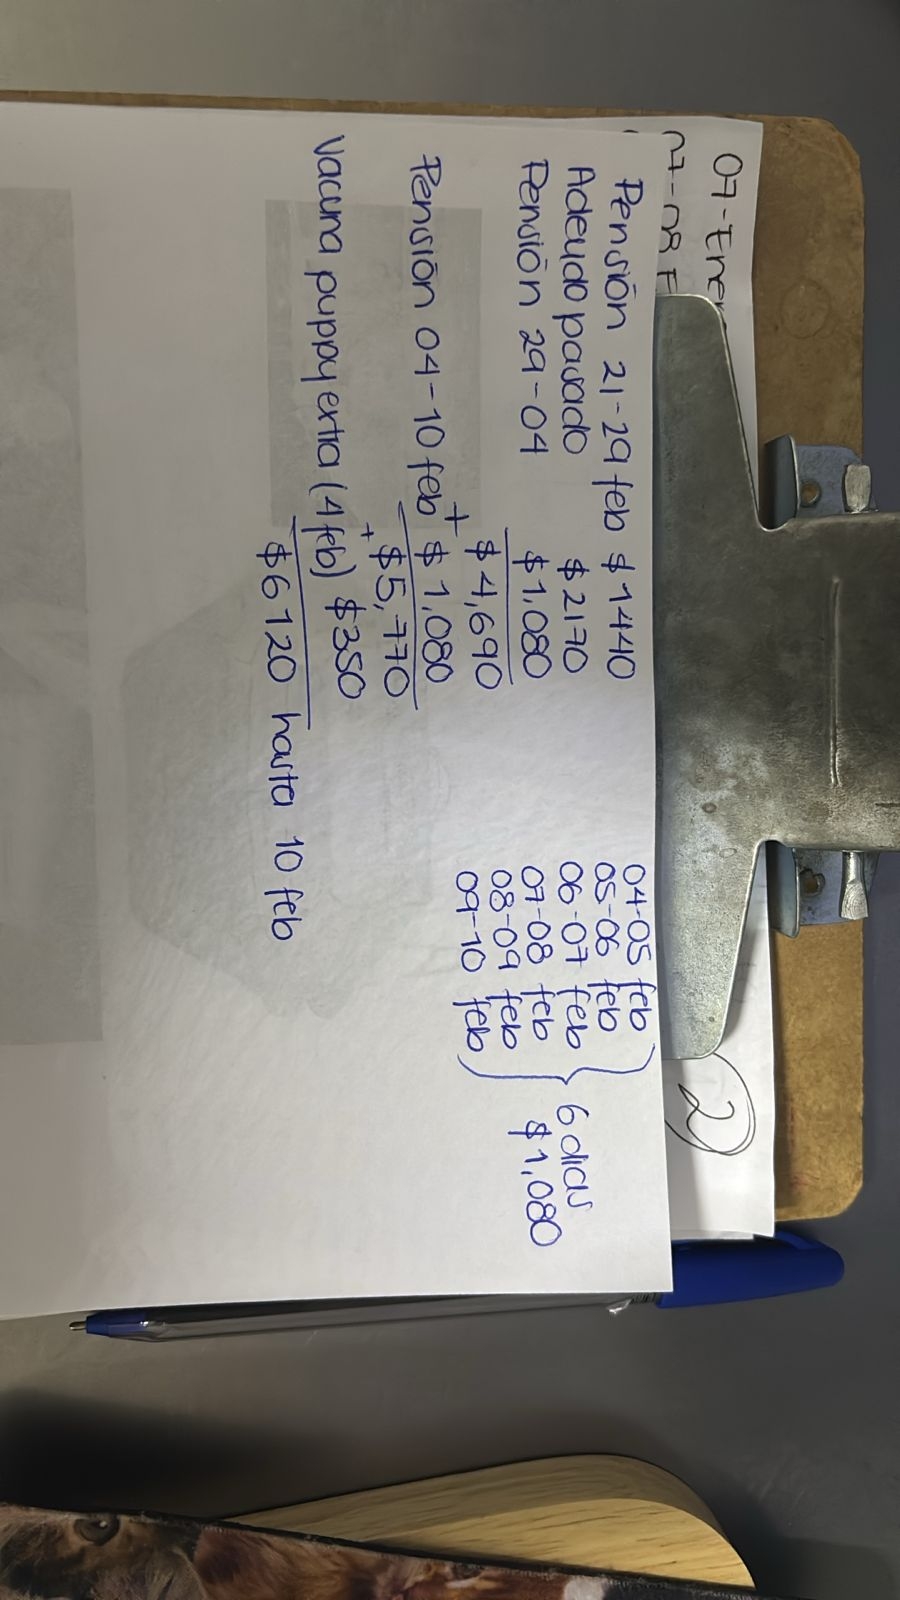 07-Ene
07-08 F
2
Pensión 21-29 feb $1440
Adeudo pasado $2170
Pensión 29-04 $1,080
$4,690
Pensión 04-10 feb + $1,080
+ $5,770
Vacuna puppy extra (4 feb) $350
$6120 hasta 10 feb
04-05 feb
05-06 feb
06-07 feb
07-08 feb
08-09 feb
09-10 feb
6 dias
$1,080